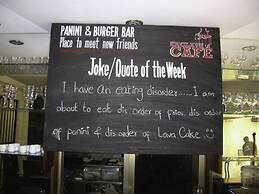 PANINI & BURGER BAR
Place to meet new friends
CAFE
Joke/Quote of the Week
I have an eating disorder.....I am
about to eat dis order of fries, dis order
of panini & dis order of Lava Cake